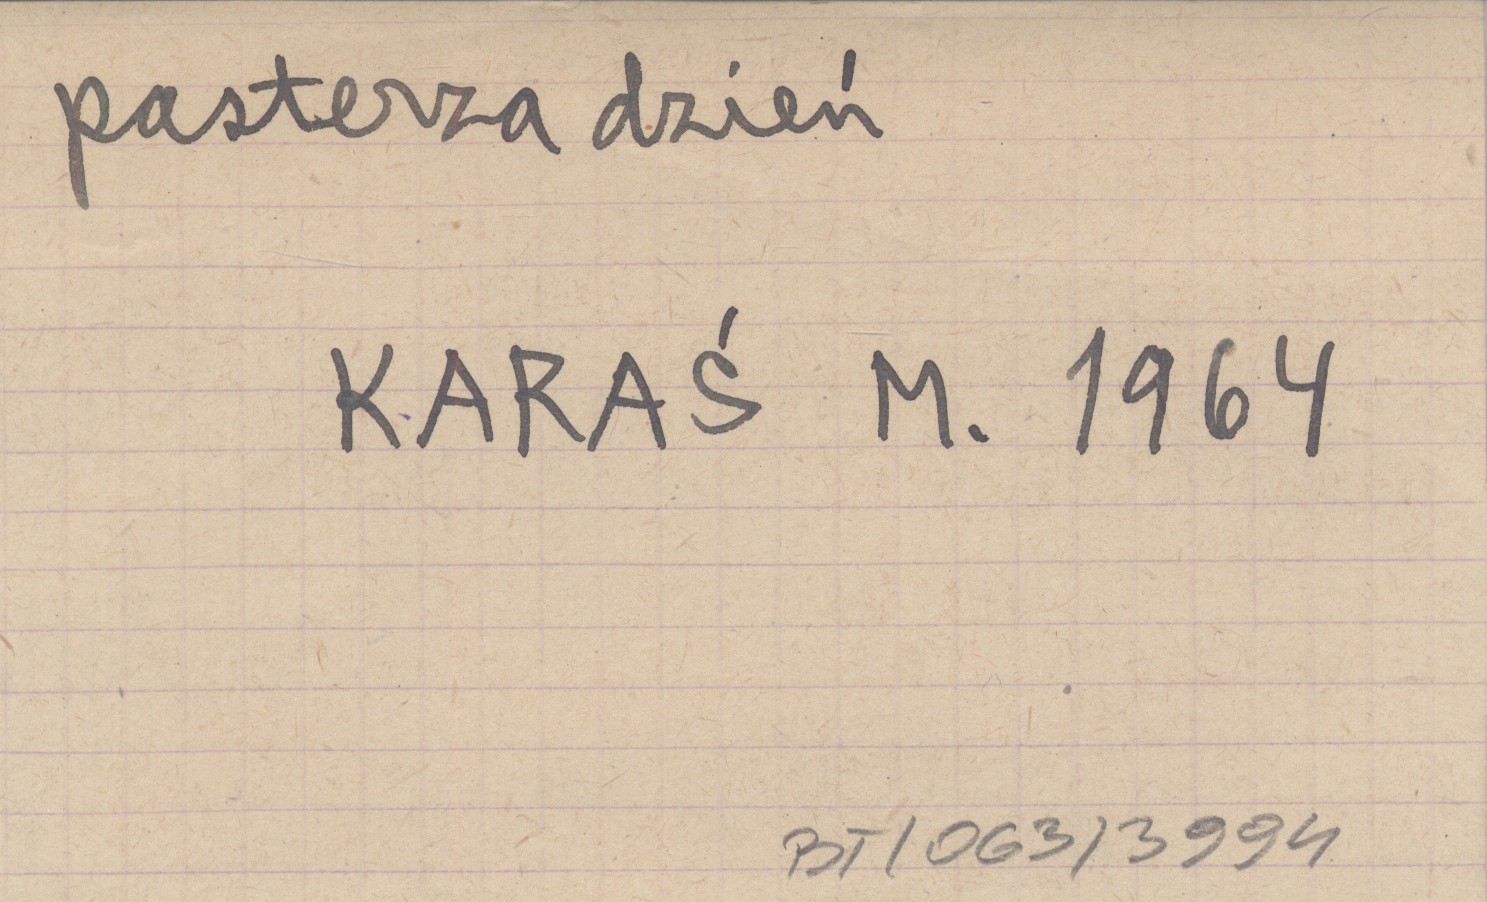 pasterza dzień
KARAŚ M. 1964
BT/063/3994